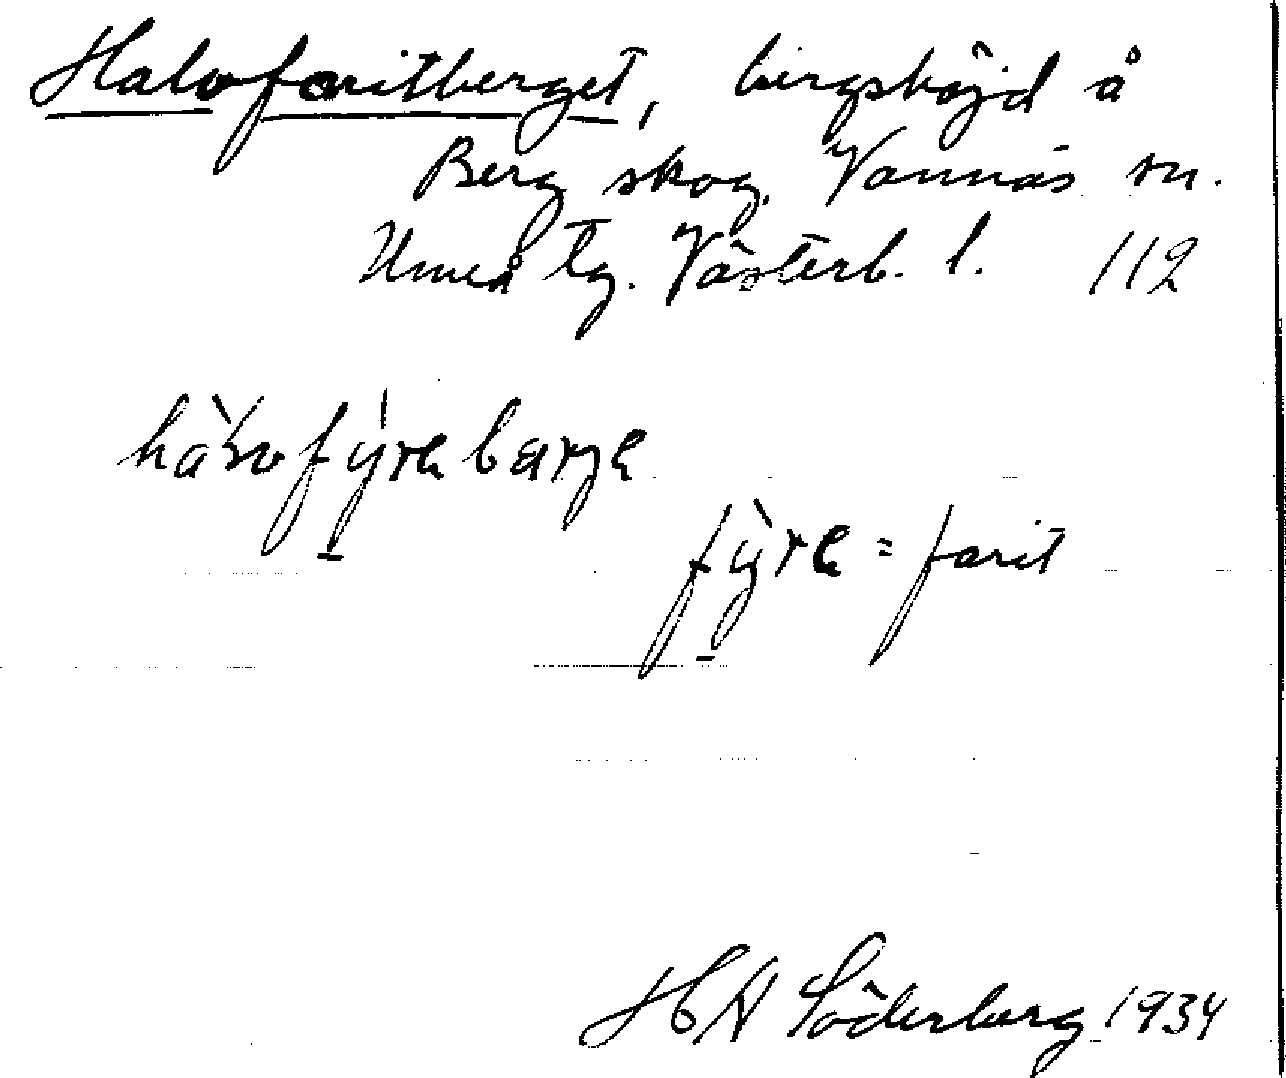 Halvfaritberget, bergshöjd å
Berg skog. Vännäs sn.
Umeå tg. Västerb. l. 112
fýre = farit
H A Söderberg 1934